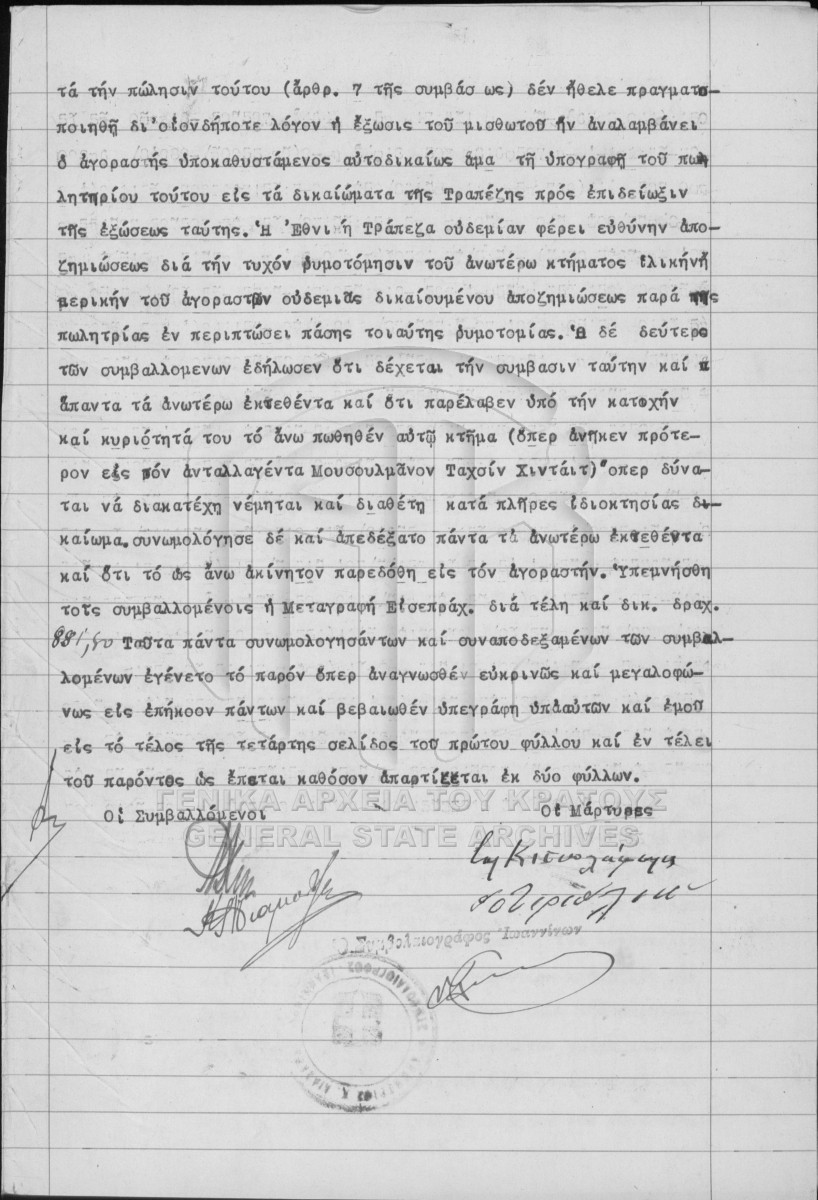 τά τήν πώλησιν τούτου (ἄρθρ. 7 τῆς συμβάσ ως) δέν ἤθελε πραγματο-
ποιηθῇ δι'οἱονδήποτε λόγον ἡ ἔξωσις τοῦ μισθωτοῦ ἥν ἀναλαμβάνει
ὁ ἀγοραστής ὑποκαθυστάμενος αὐτοδικαίως ἅμα τῇ ὑπογραφῇ τοῦ πω
λητηρίου τούτου εἰς τά δικαιώματα τῆς Τραπέζης πρός ἐπιδείωξιν
τῆς ἐξώσεως ταύτης. Ἡ Ἐθνική Τράπεζα οὐδεμίαν φέρει εὐθύνην ἀπο-
ζημιώσεως διά τήν τυχόν ρυμοτόμησιν τοῦ ἀνωτέρω κτήματος ὁλικήνἤ
μερικήν τοῦ ἀγοραστῶν οὐδεμιᾶς δικαιουμένου ἀποζημιώσεως παρά τῆς
πωλητρίας ἐν περιπτώσει πάσης τοιαύτης ρυμοτομίας. Ὁ δέ δεύτερς
τῶν συμβαλλομενων ἐδήλωσεν ὅτι δέχεται τήν συμβασιν ταύτην καί
ἅπαντα τά ἀνωτέρω ἐκτεθέντα καί ὅτι παρέλαβεν ὑπό τήν κατοχήν
καί κυριότητά του τό ἄνω πωθηθέν αὐτῷ κτῆμα (ὅπερ ἀνῆκεν πρότε-
ρον εἰς τόν ἀνταλλαγέντα Μουσουλμᾶνον Ταχσίν Χιντάϊτ) ὅπερ δύνα-
ται νά διακατέχη νέμηται καί διαθέτη κατά πλῆρες ἰδιοκτησίας δι-
καίωμα.συνωμολόγησε δέ καί ἀπεδέξατο πάντα τά ἀνωτέρω ἐκτεθέντα
καί ὅτι τό ὡς ἄνω ἀκίνητον παρεδόθη εἰς τόν ἀγοραστήν. Ὑπεμνήσθη
τοῖς συμβαλλομένοις ἡ Μεταγραφή Εἰσεπράχ. διά τέλη καί δικ. δραχ.
881,50 Ταῦτα πάντα συνωμολογησάντων καί συναποδεξαμένων τῶν συμβαλ-
λομένων ἐγένετο τό παρόν ὅπερ ἀναγνωσθέν εὐκρινῶς καί μεγαλοφώ-
νως εἰς ἐπήκοον πάντων καί βεβαιωθέν ὑπεγράφη ὑπ'αὐτῶν καί ἐμοῦ
εἰς τό τέλος τῆς τετάρτης σελίδος τοῦ πρώτου φύλλου καί ἐν τέλει
τοῦ παρόντος ὡς ἕπεται καθόσον ἀπαρτίζεται ἐκ δύο φύλλων.
ΓΕΝΙΚΑ ΑΡΧΕΙΑ ΤΟΥ ΚΡΑΤΟΥΣ
Οἱ Συμβαλλόμενοι Οἱ Μάρτυρες
GENERAL STATE ARCHIVES
Ὁ Συμβολαιογράφος Ἰωαννίνων